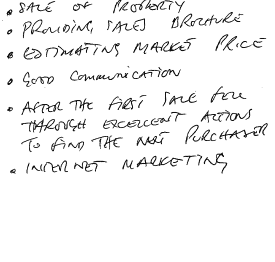 • SALE OF PROPERTY
• PROVIDING SALES BROCHURE
• ESTIMATING MARKET PRICE
• GOOD COMMUNICATION
• AFTER THE FIRST SALE FELL
THROUGH EXCELLENT ACTIONS
TO FIND THE NEXT PURCHASER
• INTERNET MARKETING